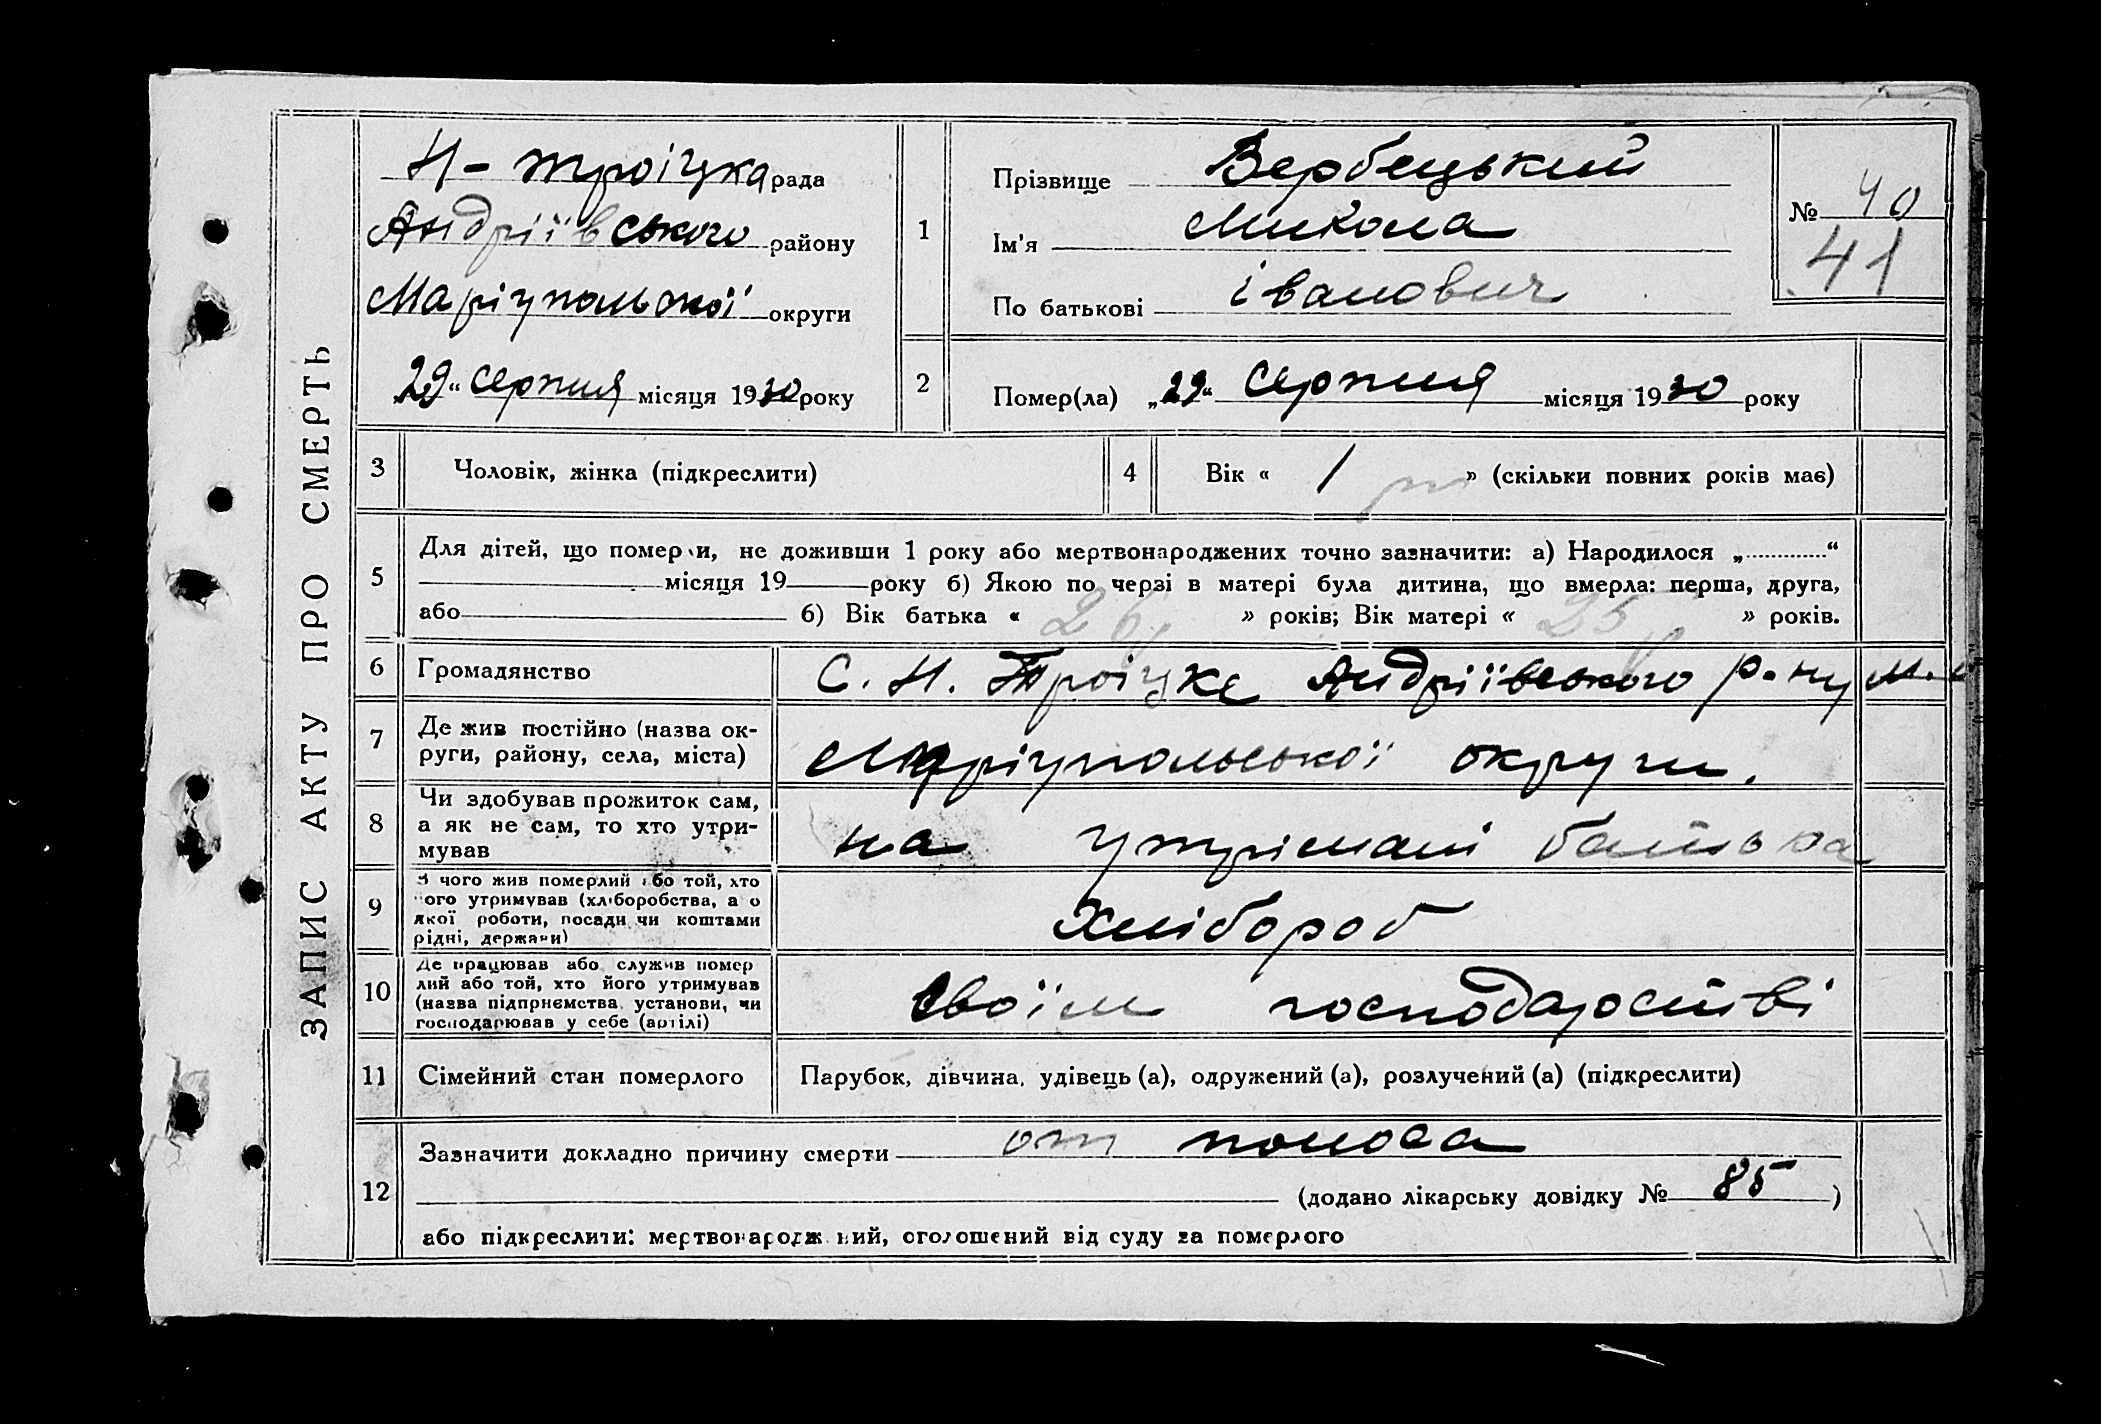 ЗАПИС АКТУ ПРО СМЕРТЬ
Н-троіцка рада
Андріївського району
Маріупольської округи
„29“ серпня місяця 1930 року
1
Прізвище Вербецький
Ім'я Микола
По батькові іванович
№ 40
41
2
Помер(ла) „29“ серпня місяця 1930 року
3 Чоловік, жінка (підкреслити)
4 Вік « 1 » (скільки повних років має)
5
Для дітей, що померли, не доживши 1 року або мертвонароджених точно зазначити: а) Народилося „............“
місяця 19 року б) Якою по черзі в матері була дитина, що вмерла: перша, друга,
або б) Вік батька « 26 » років; Вік матері « 25 » років.
6 Громадянство С. Н. Троіцке Андріївського р-ну М.
7 Де жив постійно (назва ок-
руги, району, села, міста) Маріупольської округи.
8 Чи здобував прожиток сам,
а як не сам, то хто утри-
мував на утрімані батька
9 З чого жив померлий або той, хто
його утримував (хліборобства, а о
якої роботи, посади чи коштами
рідні, держави) Хлібороб
10 Де працював або служив помер
лий або той, хто його утримував
(назва підприємства, установи, чи
господарював у себе (артілі) Своїм господарстві
11 Сімейний стан померлого Парубок, дівчина, удівець (а), одружений (а), розлучений (а) (підкреслити)
12
Зазначити докладно причину смерти от поноса
(додано лікарську довідку № 85 )
або підкреслити: мертвонароджений, оголошений від суду за померлого